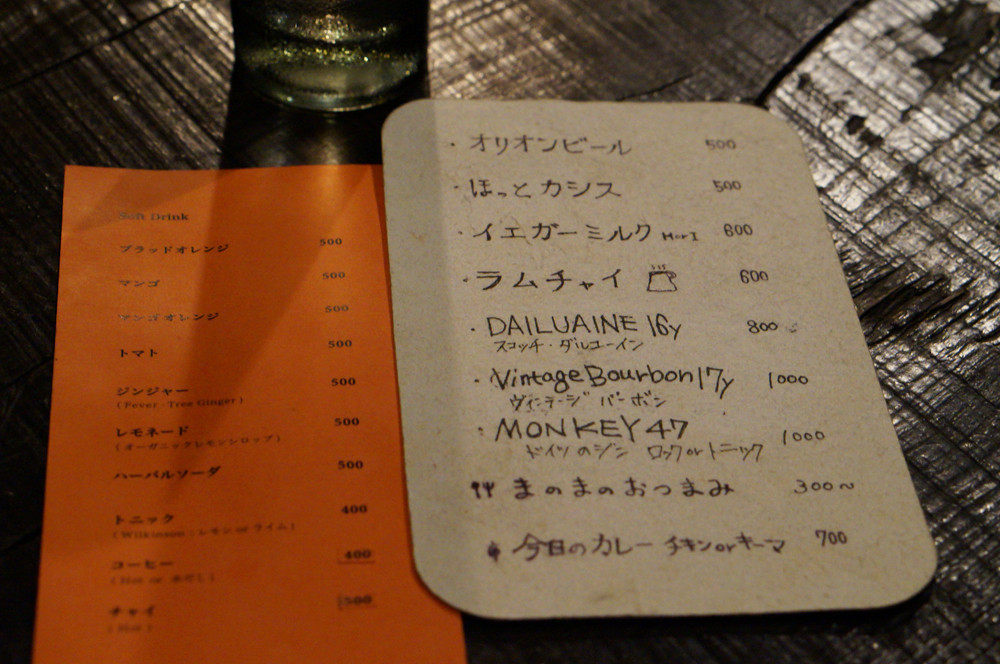 Soft Drink
ブラッドオレンジ 500
マンゴ 500
マンゴオレンジ 500
トマト 500
ジンジャー 500
(Fever-Tree Ginger)
レモネード 500
(オーガニックレモンシロップ)
ハーバルソーダ 500
トニック 400
(Wilkinson : レモン or ライム)
コーヒー 400
(Hot or 水だし)
チャイ 500
(Hot)
・オリオンビール 500
・ほっとカシス 500
・イエガーミルク HorI 600
・ラムチャイ 600
・DAILUAINE 16y 800
スコッチ・ダルユーイン
・Vintage Bourbon 17y 1000
ヴィンテージ バーボン
・MONKEY 47 1000
ドイツのジン ロック or トニック
まのまのおつまみ 300~
今日のカレー チキン or キーマ 700